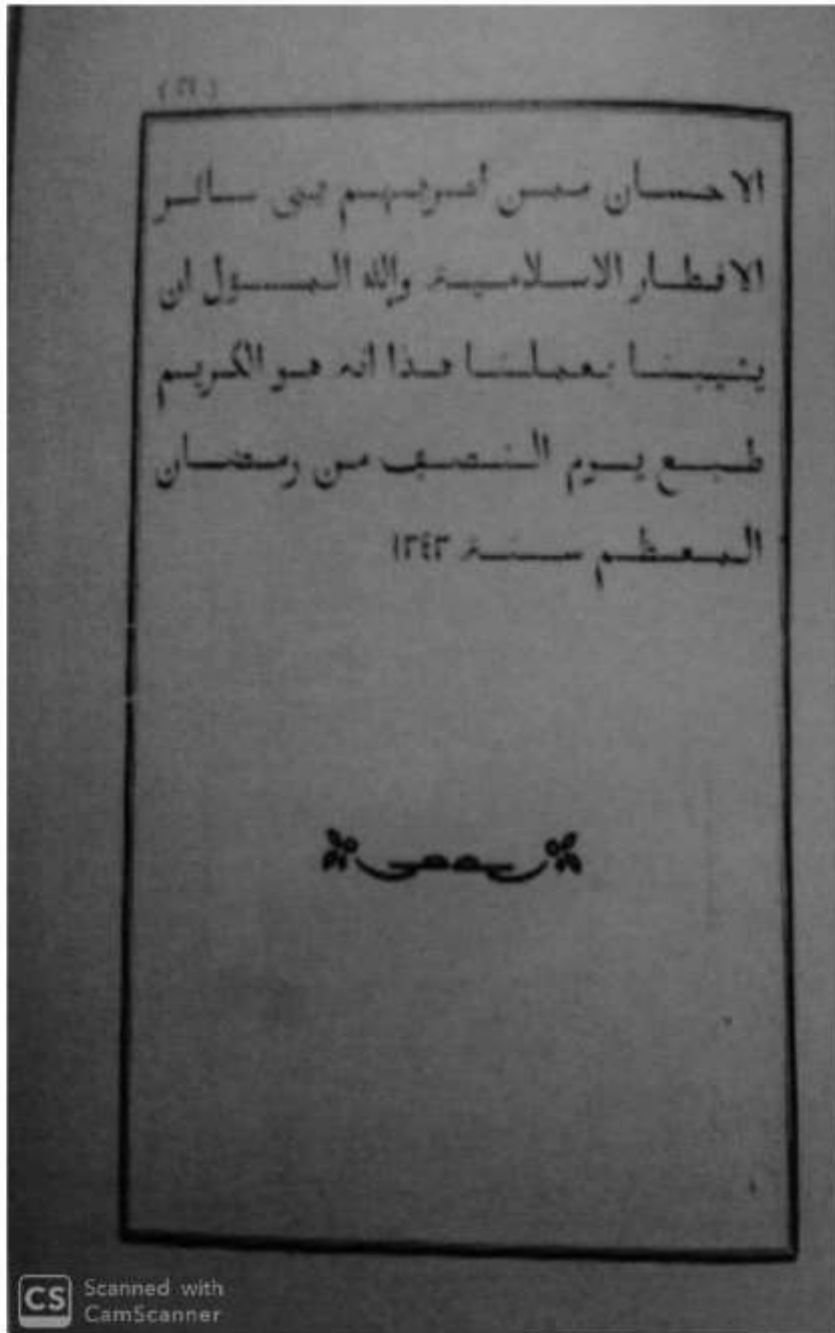 الاحسان ممن اضربهم بنى سائر
الاقطار الاسلامية والله المسؤول ان
يثيبنا بعملنا هذا انه هو الكريم
طبع يوم النصف من رمضان
المعظم سنة ١٣٤٣
CS Scanned with
CamScanner